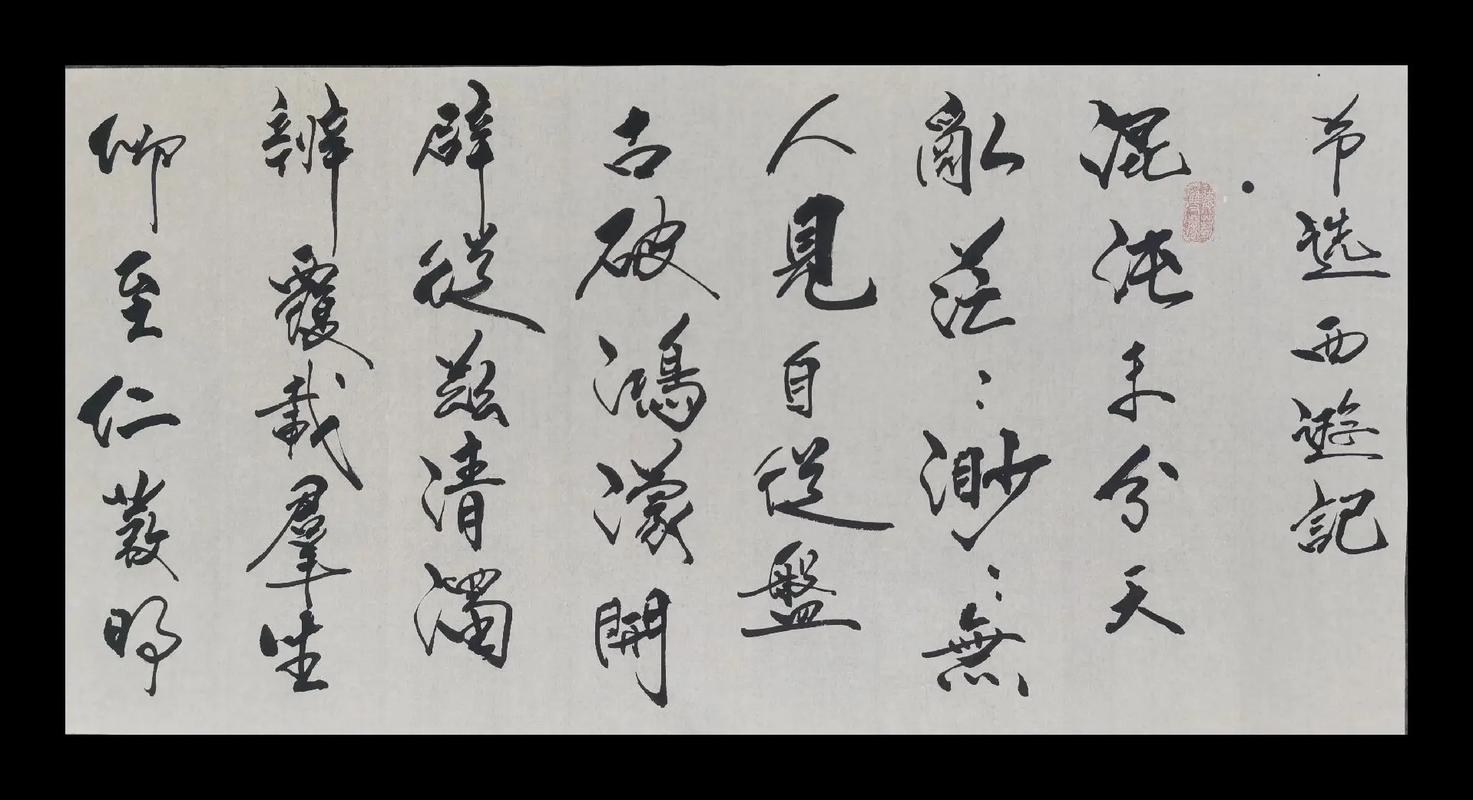 节选西遊記
混沌未分天
亂茫：渺：無
人見自從盤
古破鴻濛開
辟從茲清濁
辨覆載羣生
仰至仁發明